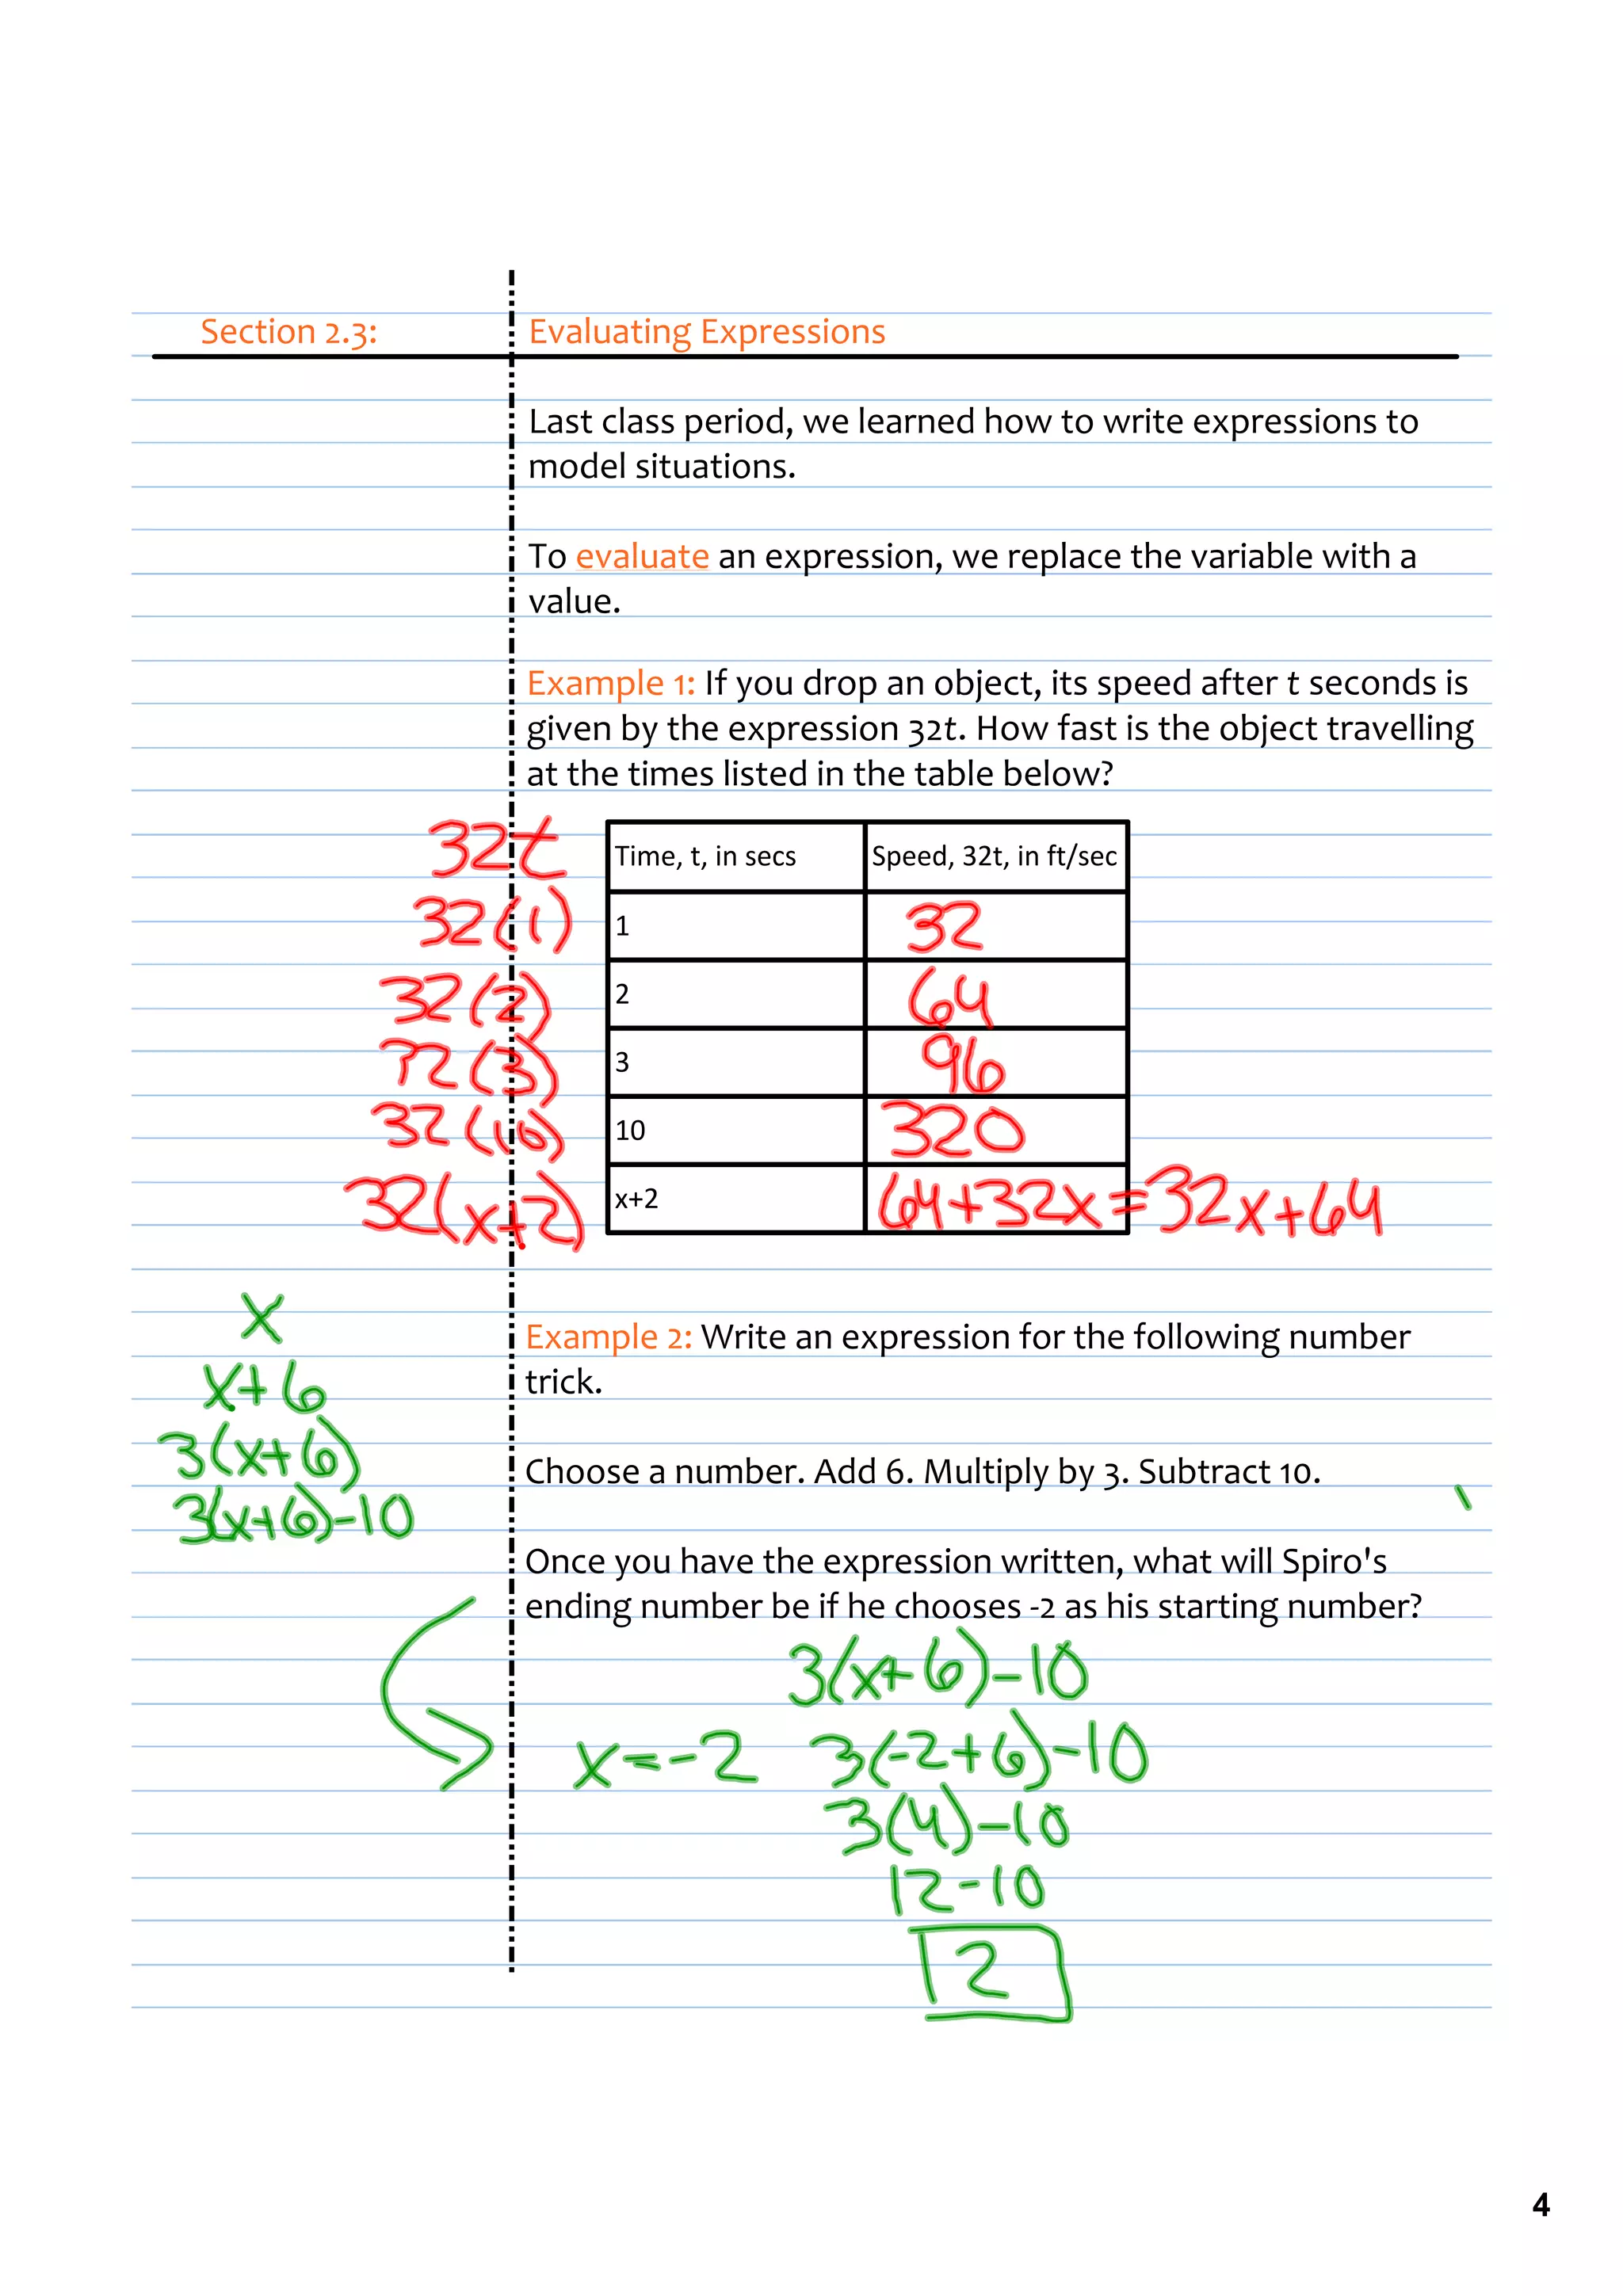 Section 2.3: Evaluating Expressions
Last class period, we learned how to write expressions to
model situations.
To evaluate an expression, we replace the variable with a
value.
Example 1: If you drop an object, its speed after t seconds is
given by the expression 32t. How fast is the object travelling
at the times listed in the table below?
32t Time, t, in secs Speed, 32t, in ft/sec
32(1) 1 32
32(2) 2 64
32(3) 3 96
32(10) 10 320
32(x+2) x+2 64+32x=32x+64
x
Example 2: Write an expression for the following number
x+6 trick.
3(x+6) Choose a number. Add 6. Multiply by 3. Subtract 10.
3(x+6)-10
Once you have the expression written, what will Spiro's
ending number be if he chooses -2 as his starting number?
3(x+6)-10
x=-2 3(-2+6)-10
3(4)-10
12-10
2
4